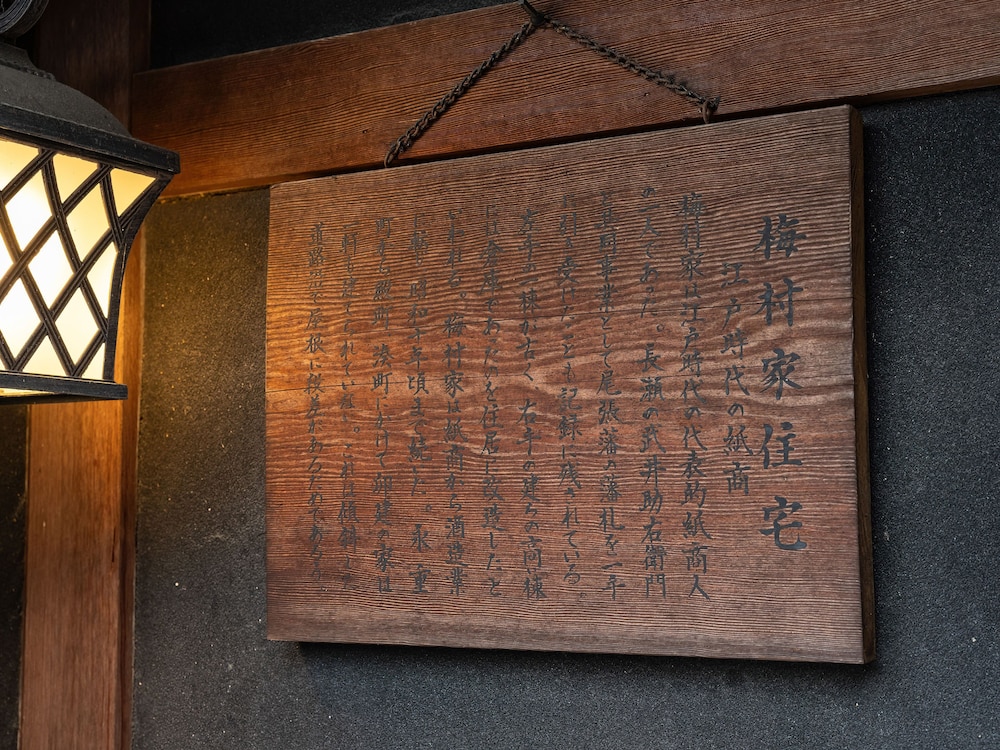 梅村家住宅
江戸時代の紙商
梅村家は江戸時代の代表的紙商人
の一人であった。長瀬の武井助右衛門
と共同事業として尾張藩の藩札を一手
に引き受けたことも記録に残されている。
左手の一棟が古く、右手の建ちの高い棟
には倉庫であったのを住居に改造したと
いわれる。梅村家は紙商から酒造業
に転じ昭和十年頃まで続した。永重
町から殿町、湊町にかけて卯建の家は
一軒も建てられていない。これは傾斜した
道路沿で屋根に段差があるためである。